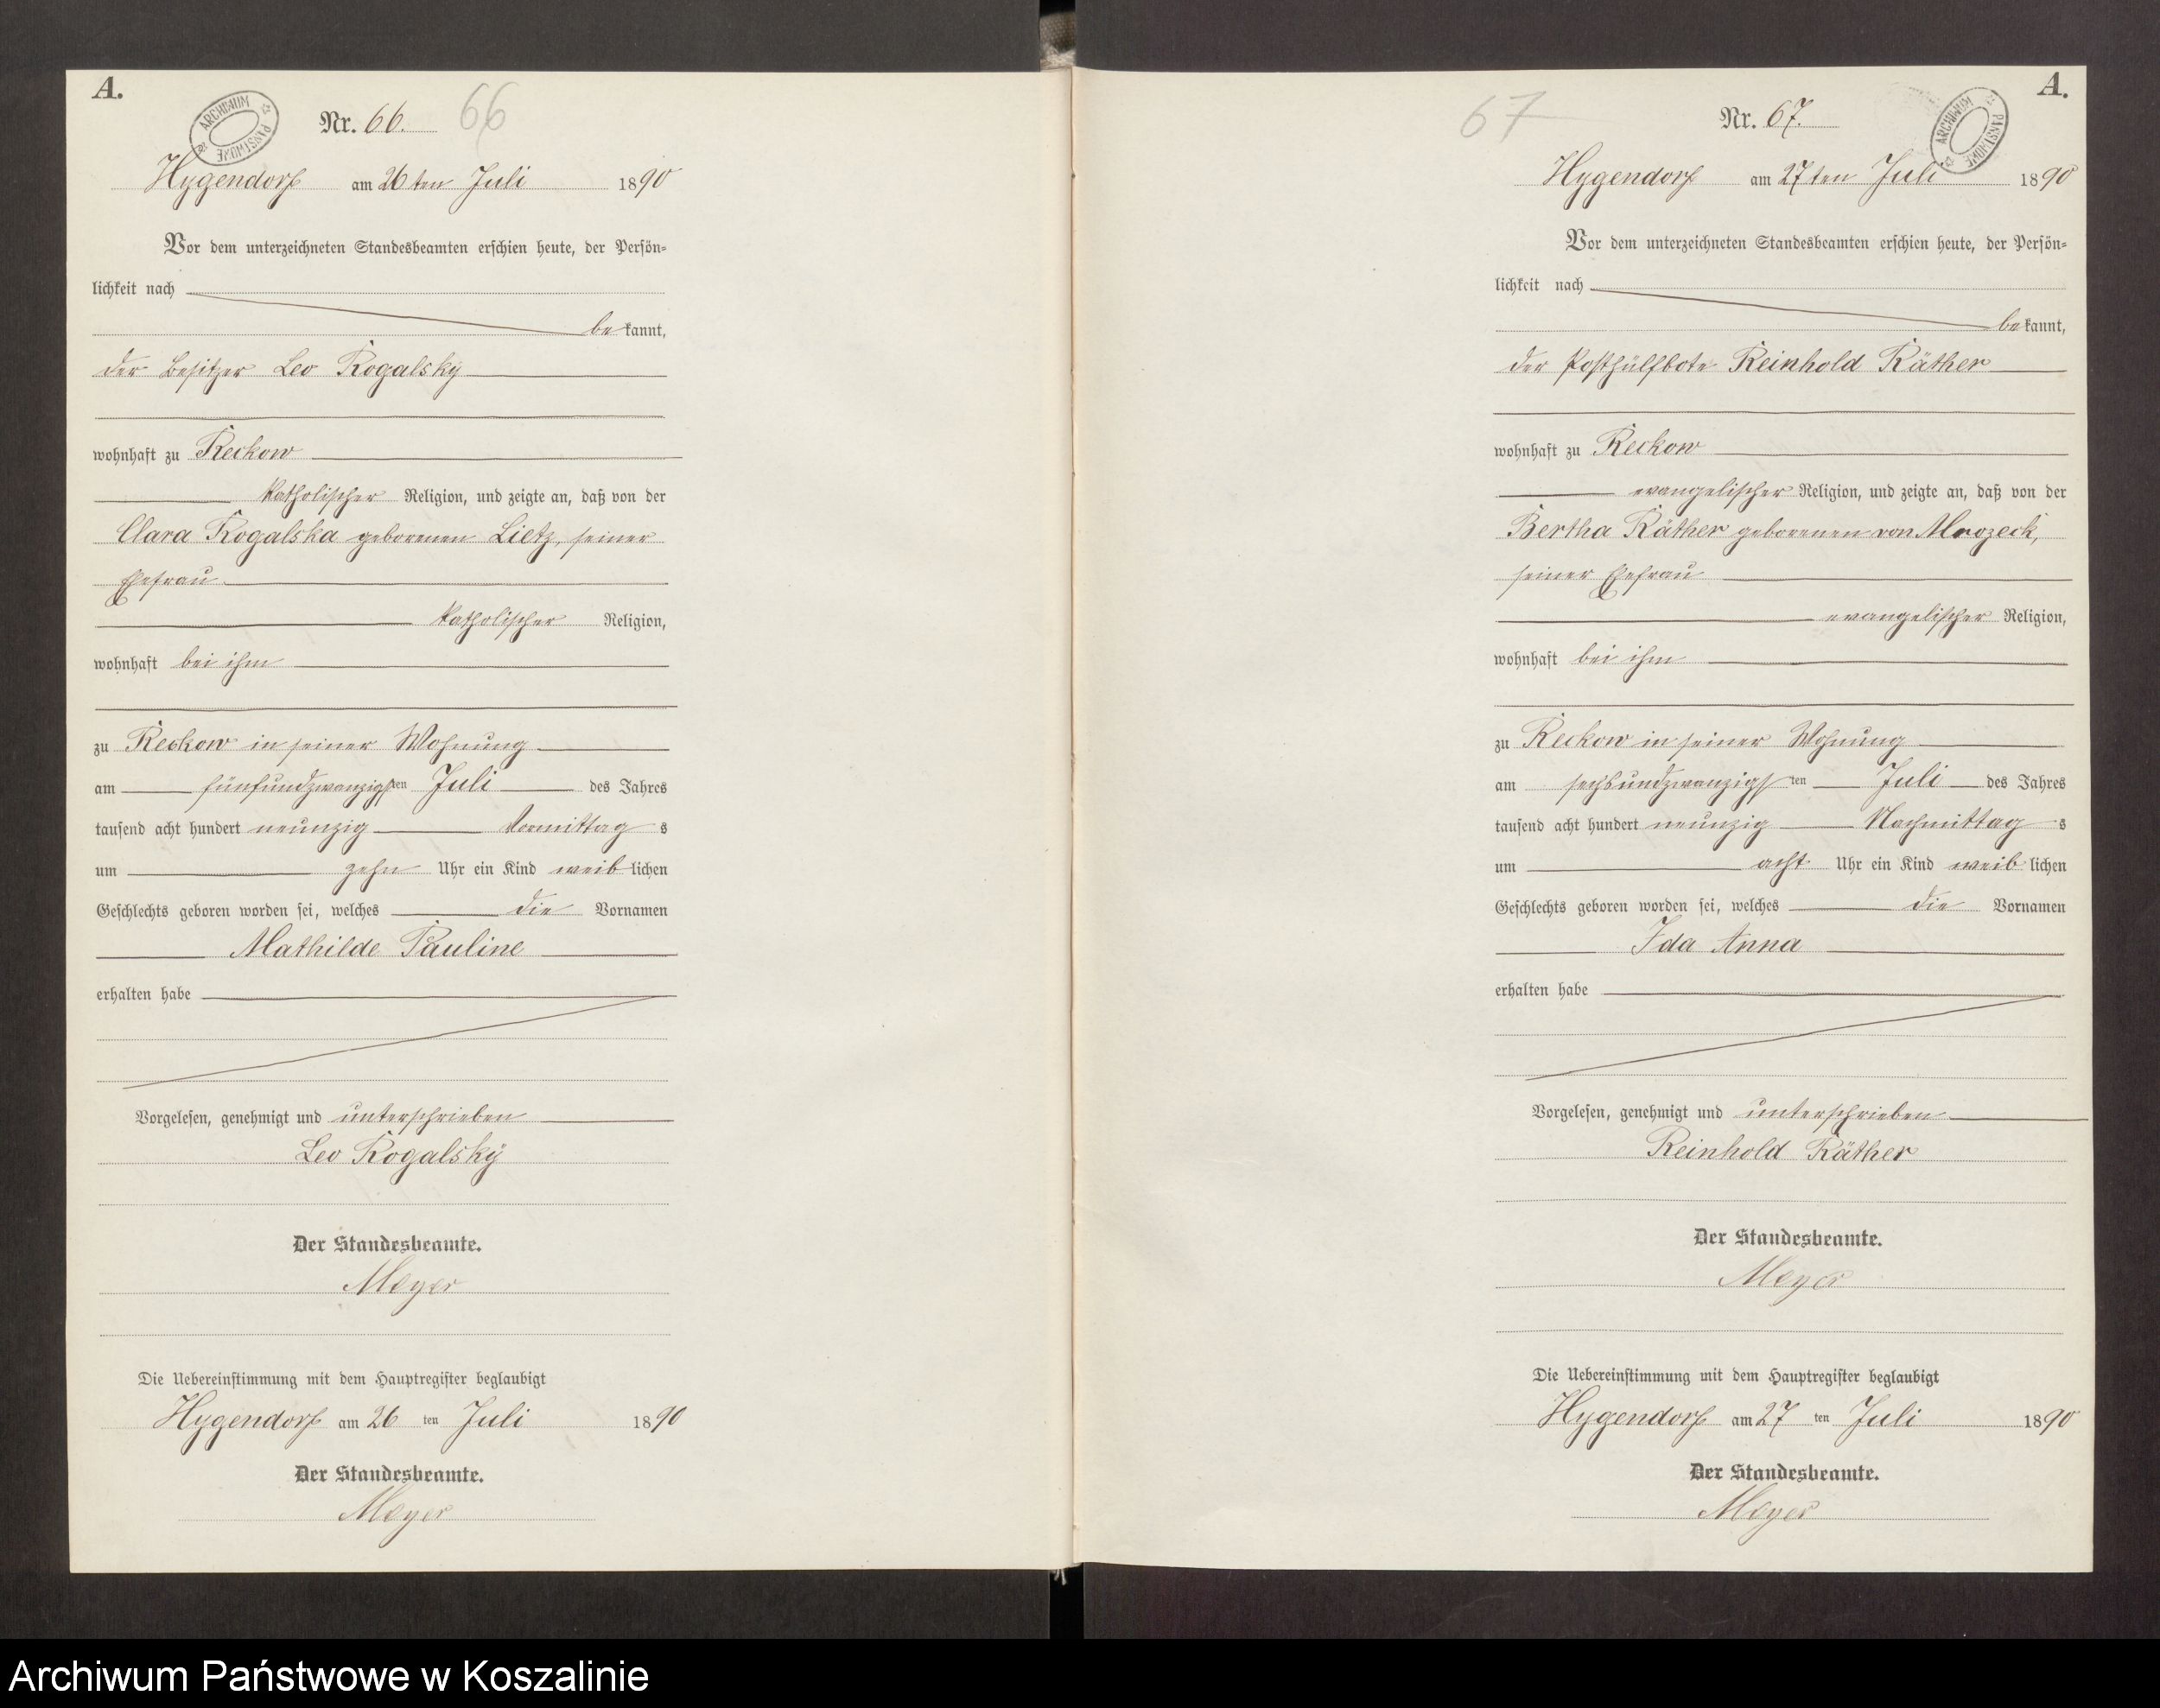 A.
ARCHIWUM PAŃSTWOWE
Nr. 66. 66
Hygendorf am 26ten Juli 1890
Vor dem unterzeichneten Standesbeamten erschien heute, der Persön-
lichkeit nach
bekannt,
der Besitzer Leo Rogalsky
wohnhaft zu Reckow
katholischer Religion, und zeigte an, daß von der
Clara Rogalska geborenen Lietz, seiner
Ehefrau
katholischer Religion,
wohnhaft bei ihm
zu Reckow in seiner Wohnung
am fünfundzwanzigsten Juli des Jahres
tausend acht hundert neunzig Vormittags
um zehn Uhr ein Kind weiblichen
Geschlechts geboren worden sei, welches die Vornamen
Mathilde Pauline
erhalten habe
Vorgelesen, genehmigt und unterschrieben
Leo Rogalsky
Der Standesbeamte.
Meyer
Die Uebereinstimmung mit dem Hauptregister beglaubigt
Hygendorf am 26ten Juli 1890
Der Standesbeamte.
Meyer
A.
67 Nr. 67.
ARCHIWUM PAŃSTWOWE
Hygendorf am 27ten Juli 1890
Vor dem unterzeichneten Standesbeamten erschien heute, der Persön-
lichkeit nach
bekannt,
der Posthülfbote Reinhold Räther
wohnhaft zu Reckow
evangelischer Religion, und zeigte an, daß von der
Bertha Räther geborenen von Mrozeck,
seiner Ehefrau
evangelischer Religion,
wohnhaft bei ihm
zu Reckow in seiner Wohnung
am sechsundzwanzigsten Juli des Jahres
tausend acht hundert neunzig Nachmittags
um acht Uhr ein Kind weiblichen
Geschlechts geboren worden sei, welches die Vornamen
Ida Anna
erhalten habe
Vorgelesen, genehmigt und unterschrieben
Reinhold Räther
Der Standesbeamte.
Meyer
Die Uebereinstimmung mit dem Hauptregister beglaubigt
Hygendorf am 27ten Juli 1890
Der Standesbeamte.
Meyer
Archiwum Państwowe w Koszalinie